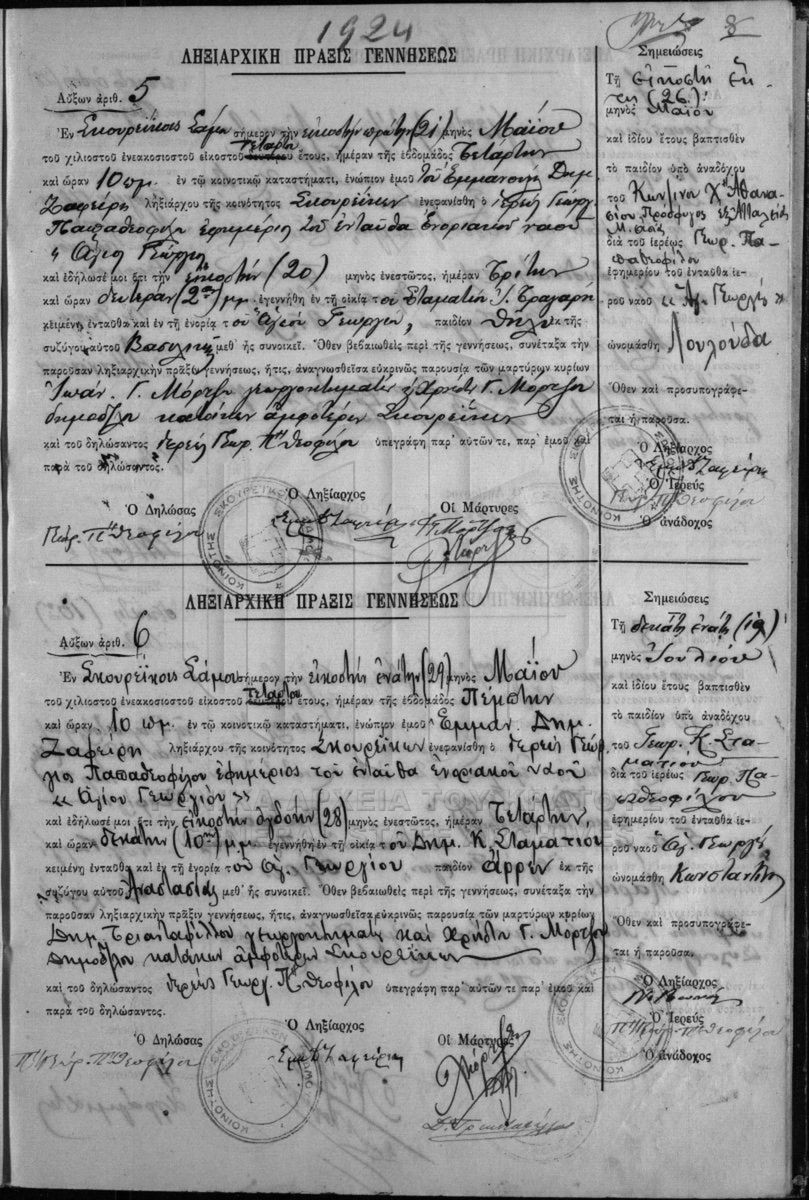 1924
8
ΛΗΞΙΑΡΧΙΚΗ ΠΡΑΞΙΣ ΓΕΝΝΗΣΕΩΣ
Αὔξων ἀριθ. 5
Ἐν Σκουρεΐκοις Σάμου σήμερον τὴν εἰκοστὴν πρώτην (21) μηνὸς Μαΐου
τοῦ χιλιοστοῦ ἐνεακοσιοστοῦ εἰκοστοῦ τετάρτου ἔτους, ἡμέραν τῆς ἑβδομάδος Τετάρτην
καὶ ὥραν 10 πμ. ἐν τῷ κοινοτικῷ καταστήματι, ἐνώπιον ἐμοῦ τοῦ Ἐμμανουὴλ Δημ.
Ζαφείρη ληξιάρχου τῆς κοινότητος Σκουρεΐκων ἐνεφανίσθη ὁ ἱερεὺς Γεώργ.
Παπαθεοφίλου ἐφημέριος τοῦ ἐνταῦθα ἐνοριακοῦ ναοῦ
« Ἁγίου Γεωργίου
καὶ ἐδήλωσέ μοι ὅτι τὴν εἰκοστὴν (20) μηνὸς ἐνεστῶτος, ἡμέραν Τρίτην
καὶ ὥραν δευτέραν (2αν) μμ. ἐγεννήθη ἐν τῇ οἰκίᾳ τοῦ Σταματίου Τραγάρη
κειμένῃ ἐνταῦθα καὶ ἐν τῇ ἐνορίᾳ τοῦ Ἁγίου Γεωργίου, παιδίον θῆλυ ἐκ τῆς
συζύγου αὐτοῦ Βασιλικῆς μεθ' ἧς συνοικεῖ. Ὅθεν βεβαιωθεὶς περὶ τῆς γεννήσεως, συνέταξα τὴν
παροῦσαν ληξιαρχικὴν πρᾶξιν γεννήσεως, ἥτις, ἀναγνωσθεῖσα εὐκρινῶς παρουσίᾳ τῶν μαρτύρων κυρίων
Ἰωάν. Γ. Μόρτζου γεωργοκτηματίου Χρήστου Γ. Μόρτζου
δημοδ/λου κατοίκων ἀμφοτέρων Σκουρεΐκων
καὶ τοῦ δηλώσαντος ἱερέως Γεωρ. Πηθεοφίλου ὑπεγράφη παρ' αὐτῶν τε, παρ' ἐμοῦ καὶ
παρὰ τοῦ δηλώσαντος.
Ὁ Δηλώσας
Ὁ Ληξίαρχος
Οἱ Μάρτυρες
Γεωρ. Πηθεοφίλου
Σημειώσεις
Τῇ εἰκοστῇ ἕκ-
τῃ (26)
μηνὸς Μαΐου
καὶ ἰδίου ἔτους βαπτισθὲν
τὸ παιδίον ὑπὸ ἀναδόχου
τοῦ Κων/ίνου Χ''Ἀθανα-
σίου Πρόσφυγος ἐξ Ἀτταλείας
Μ. Ἀσίας
διὰ τοῦ ἱερέως Γεωρ. Πα-
παθεοφίλου
ἐφημερίου τοῦ ἐνταῦθα ἱε-
ροῦ ναοῦ « Ἁγ. Γεωργίου »
ὠνομάσθη Λουλούδα
Ὅθεν καὶ προσυπογράφε-
ται ἡ παροῦσα.
Ὁ Ληξίαρχος
Ὁ Ἱερεὺς
Ὁ ἀνάδοχος
ΛΗΞΙΑΡΧΙΚΗ ΠΡΑΞΙΣ ΓΕΝΝΗΣΕΩΣ
Αὔξων ἀριθ. 6
Ἐν Σκουρεΐκοις Σάμου σήμερον τὴν εἰκοστὴν ἐνάτην (29) μηνὸς Μαΐου
τοῦ χιλιοστοῦ ἐνεακοσιοστοῦ εἰκοστοῦ τετάρτου ἔτους, ἡμέραν τῆς ἑβδομάδος Πέμπτην
καὶ ὥραν 10 πμ. ἐν τῷ κοινοτικῷ καταστήματι, ἐνώπιον ἐμοῦ Ἐμμαν. Δημ.
Ζαφείρη ληξιάρχου τῆς κοινότητος Σκουρεΐκων ἐνεφανίσθη ὁ ἱερεὺς Γεώρ-
γιος Παπαθεοφίλου ἐφημέριος τοῦ ἐνταῦθα ἐνοριακοῦ ναοῦ
« Ἁγίου Γεωργίου »
καὶ ἐδήλωσέ μοι ὅτι τὴν εἰκοστὴν ὀγδόην (28) μηνὸς ἐνεστῶτος, ἡμέραν Τετάρτην,
καὶ ὥραν δεκάτην (10ην) μμ. ἐγεννήθη ἐν τῇ οἰκίᾳ τοῦ Δημ. Κ. Σταματίου
κειμένῃ ἐνταῦθα καὶ ἐν τῇ ἐνορίᾳ τοῦ Ἁγ. Γεωργίου παιδίον ἄρρεν ἐκ τῆς
συζύγου αὐτοῦ Ἀναστασίας μεθ' ἧς συνοικεῖ. Ὅθεν βεβαιωθεὶς περὶ τῆς γεννήσεως, συνέταξα τὴν
παροῦσαν ληξιαρχικὴν πρᾶξιν γεννήσεως, ἥτις, ἀναγνωσθεῖσα εὐκρινῶς παρουσίᾳ τῶν μαρτύρων κυρίων
Δημ. Τριανταφύλλου γεωργοκτηματίου καὶ Χρήστου Γ. Μόρτζου
δημοδ/λου κατοίκων ἀμφοτέρων Σκουρεΐκων
καὶ τοῦ δηλώσαντος ἱερέως Γεωργ. Πηθεοφίλου ὑπεγράφη παρ' αὐτῶν τε παρ' ἐμοῦ καὶ
παρὰ τοῦ δηλώσαντος.
Ὁ Δηλώσας
Ὁ Ληξίαρχος
Οἱ Μάρτυρες
Σημειώσεις
Τῇ δεκάτῃ ἐνάτῃ (19)
μηνὸς Ἰουλίου
καὶ ἰδίου ἔτους βαπτισθὲν
τὸ παιδίον ὑπὸ ἀναδόχου
τοῦ Γεωρ. Κ. Στα-
ματίου
διὰ τοῦ ἱερέως Γεωρ. Πα-
παθεοφίλου
ἐφημερίου τοῦ ἐνταῦθα ἱε-
ροῦ ναοῦ Ἁγ. Γεωργίου
ὠνομάσθη Κωνσταντῖνος
Ὅθεν καὶ προσυπογράφε-
ται ἡ παροῦσα.
Ὁ Ληξίαρχος
Ὁ Ἱερεὺς
Ὁ ἀνάδοχος